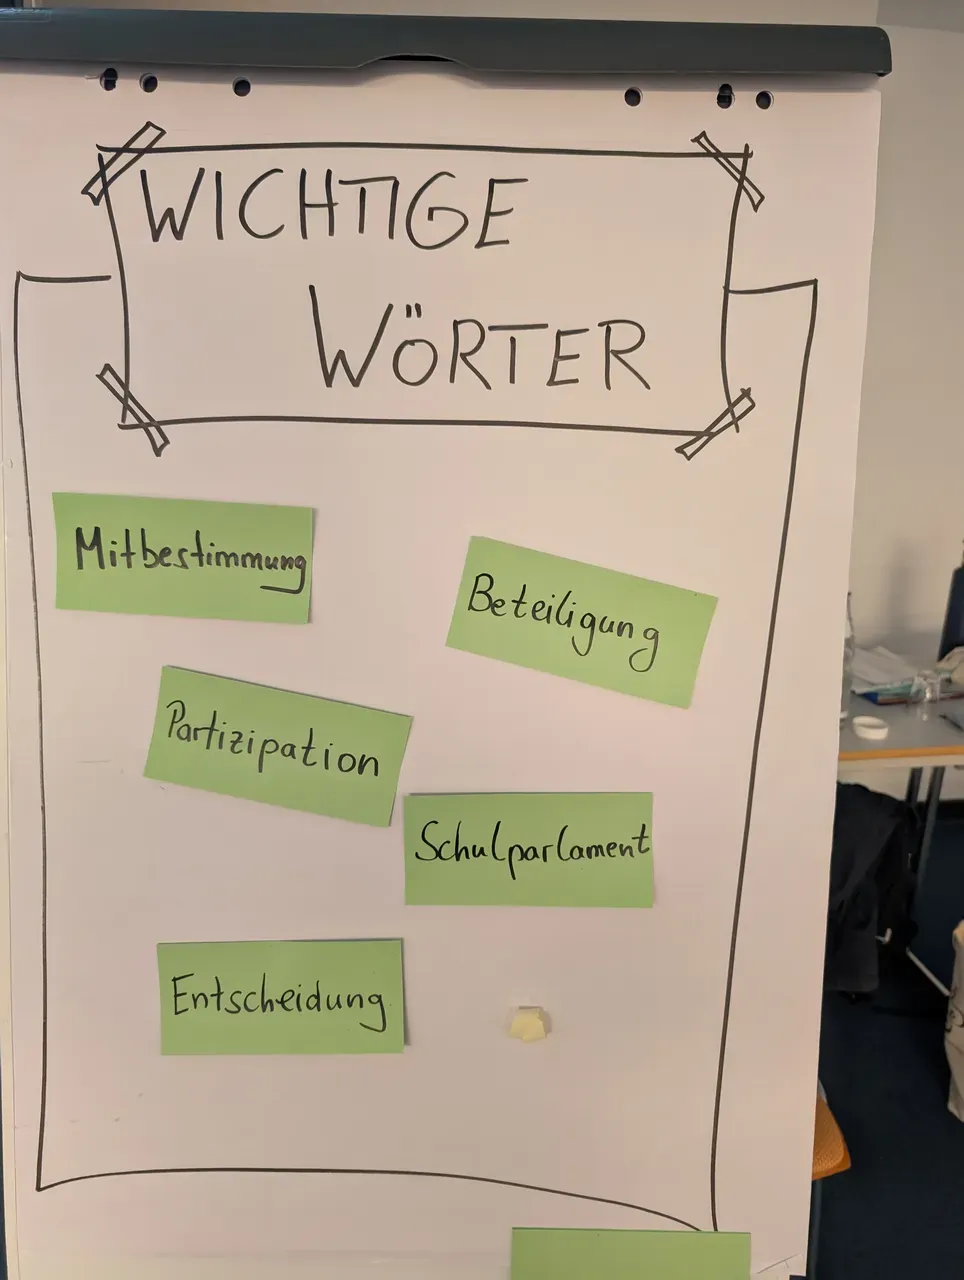 WICHTIGE
WÖRTER
Mitbestimmung
Beteiligung
Partizipation
Schulparlament
Entscheidung